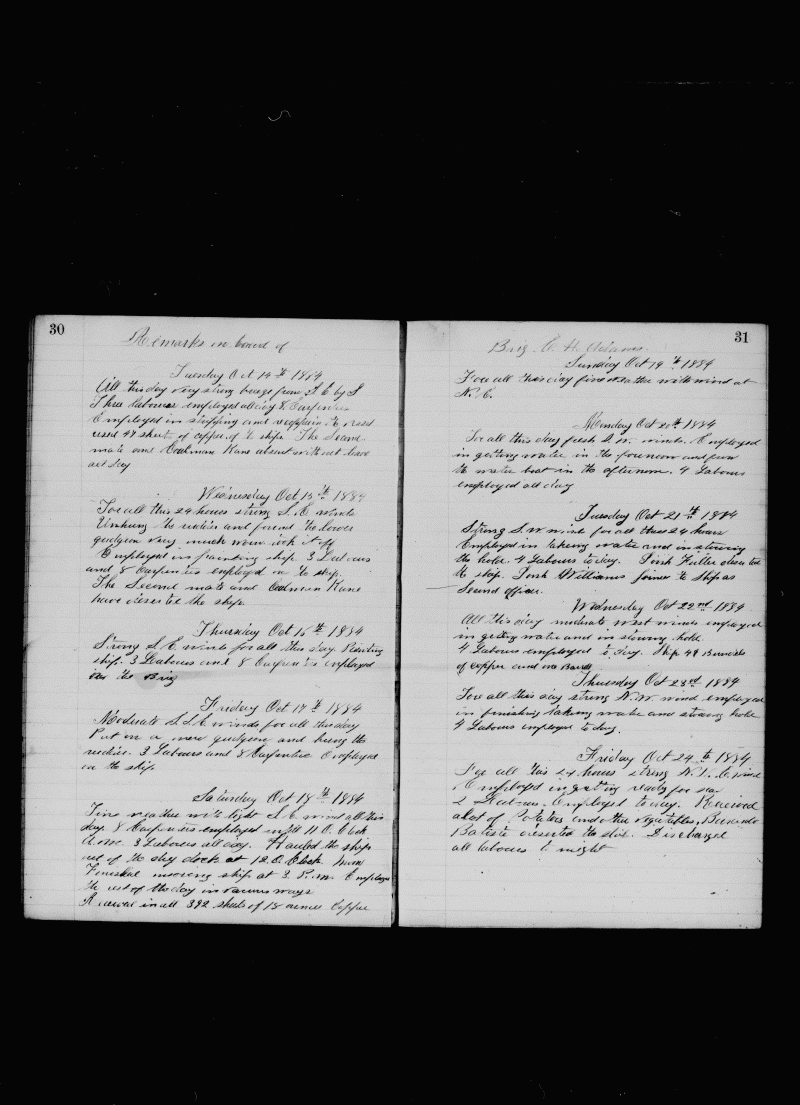 30
Remarks on board of
Tuesday Oct 14th 1884
All this day very strong breeze from S E by S
Three labours employed all day 8 Carpenters
Employed in stripping and coppering the vessel
used 47 sheets of copper of the ships The Second
mate and Coalman Kane absent without leave
all day
Wednesday Oct 15th 1884
For all this 24 hours strong S. E. winds
Unhung the rudder and found the lower
gudgeon very much worn took it off
Employed in painting ship 3 Labours
and 8 Carpenters employed on the ship
The Second mate and Coalman Kane
have deserted the ship
Thursday Oct 16th 1884
Strong S E winds for all this day Painting
ship. 3 Labours and 8 Carpenters employed
on the Brig
Friday Oct 17th 1884
Moderate S S E winds for all this day
Put on a new gudgeon and hung the
rudder. 3 Labours and 8 Carpenters Employed
on the ship
Saturday Oct 18th 1884
Fine weather with light S. E. wind all this
day. 8 Carpenters employed untill 11 O. Clock
A.M. 3 Labours all day. Hauled the ship
out of the dry dock at 12 O. Clock noon
Finished mooring ship at 3 P.m. Employed
the rest of the day in various ways
Received in all 392 sheets of 18 ounce Copper
31
Brig
Sunday Oct 19th 1884
For all this day fine weather with wind at
N. E.
Monday Oct 20th 1884
For all this day fresh S. W. winds. Employed
in getting water in the forenoon and from
the water boat in the afternoon. 4 Labours
employed all day
Tuesday Oct 21th 1884
Strong S W winds for all these 24 hours
Employed in taking water and in stowing
the hold. 4 Labours to day. Fuller deserted
the ship. Williams joined the ship as
Second officer.
Wednesday Oct 22nd 1884
All this day moderate west winds employed
in getting water and in stowing hold.
4 Labours employed to day. Ship 48 Bundels
of copper and one Barell
Thursday Oct 23rd 1884
For all this day strong N. W. wind employed
in finishing taking water and stowing hold
4 Labours employed to day.
Friday Oct 24th 1884
For all this 24 hours strong wind
Employed in getting ready for sea
2 Labours Employed to day. Received
a lot of Potatoes and other vegetables,
Batiste deserted the ship. Discharged
all labours to night